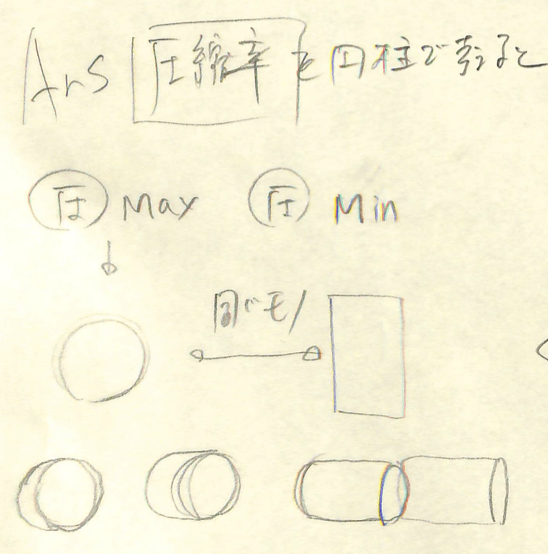 Ars 圧縮率を円柱で考えると
圧 Max 圧 Min
同じモノ